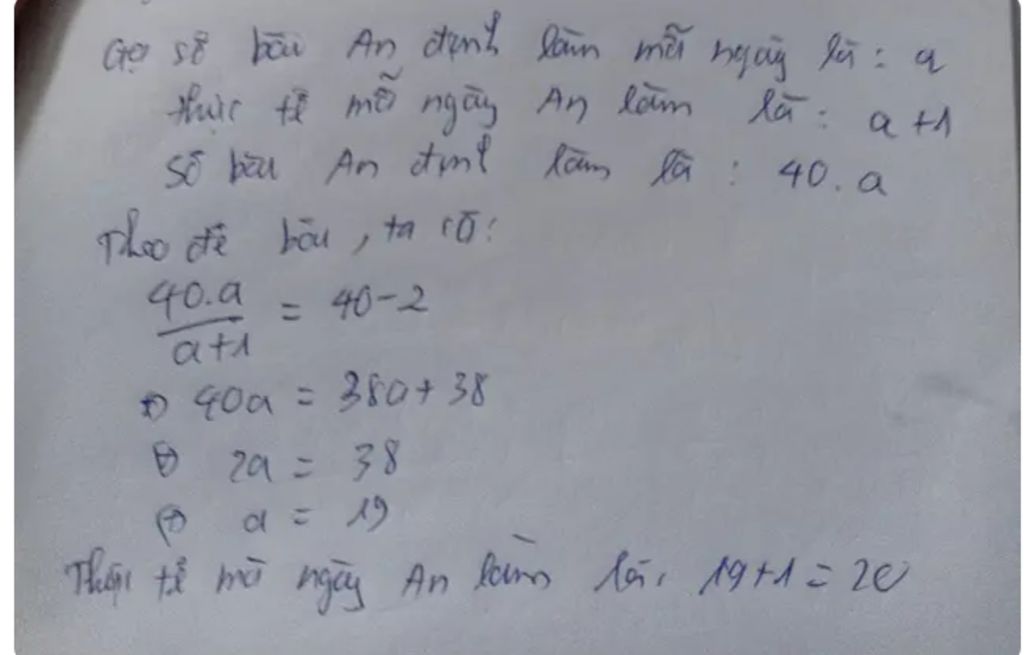 Gọi số bài An định làm mỗi ngày là: a
thực tế mỗi ngày An làm là: a+1
Số bài An định làm là: 40.a
Theo đề bài, ta có:
40.a/a+1 = 40-2
⇔ 40a = 38a+38
⇔ 2a = 38
⇔ a = 19
Thực tế mỗi ngày An làm là: 19+1=20